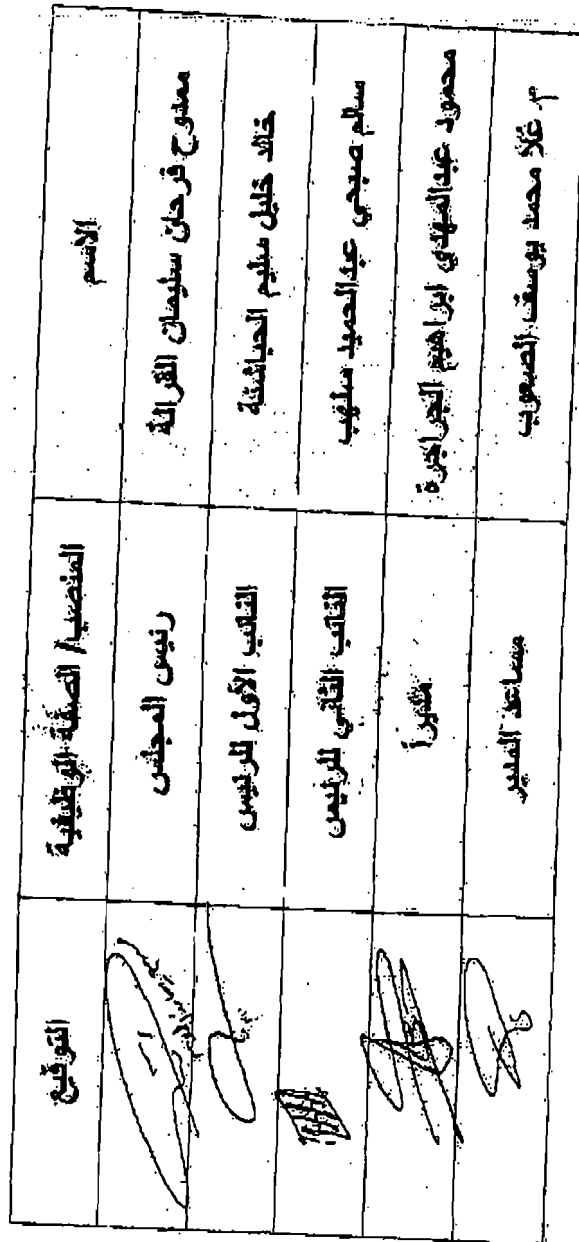 الاسم المنصب/ الصفة الوظيفية التوقيع
ممدوح فرحان سليمان القرالة رئيس المجلس
خالد خليل سليم الحباشنة النائب الأول للرئيس
سالم صبحي عبدالحميد سلهب النائب الثاني للرئيس
محمود عبدالمهدي ابراهيم الجراجرة مديراً
م علا محمد يوسف الصعوب مساعد المدير